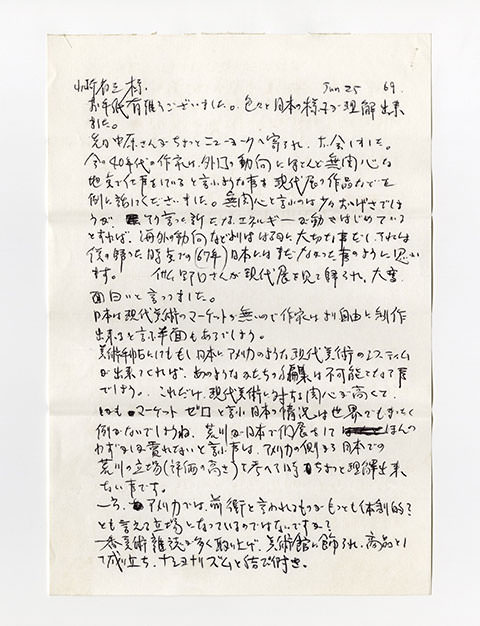 山崎省三様. Jun 25 69.
お手紙有難うございました。色々と日本の様子が理解出来
ました。
先日中原さんがちょっとニューヨークへ寄られ、お会いしました。
今の40年代の作家は、外国の動向にほとんど無関心な
地点で仕事をしていると言うような事を現代展の作品などを
例に話してくださいました。無関心と言うのは少々おおげさでしょ
うが、そう言った新たなエネルギーが動きはじめている
とすれば、海外の動向などよりははるかに大切な事だし、それには
僕の帰った時点での(67年)日本にはまだなかった事のように思い
ます。 さんが現代展を見て帰られ、大変
面白いと言ってました。
日本は現代美術のマーケットが無いので作家はより自由に制作
出来ると言う半面もあるでしょう。
美術手帖にしても、もし日本にアメリカのような現代美術のシステム
が出来てくれば、あのようなかたちの編集は不可能でなる事
でしょう。これだけ、現代美術に対する関心が高くて、
しかもマーケットゼロと言う日本の情況は世界でもまったく
例がないでしょうね。荒川が日本で個展をして ほんの
わずかしか売れないと言う事は、アメリカの側から日本での
荒川の立場(評価の高さ)を考えて時ちょっと理解出来
ない事です。
一方、アメリカでは、前衛と言われるものがもっとも体制的?
とも言える立場となっているのではないですか?
一番美術雑誌が多く取り上げ、美術館に飾られ、商品とし
て成り立ち、ナショナリズムと結び付き。